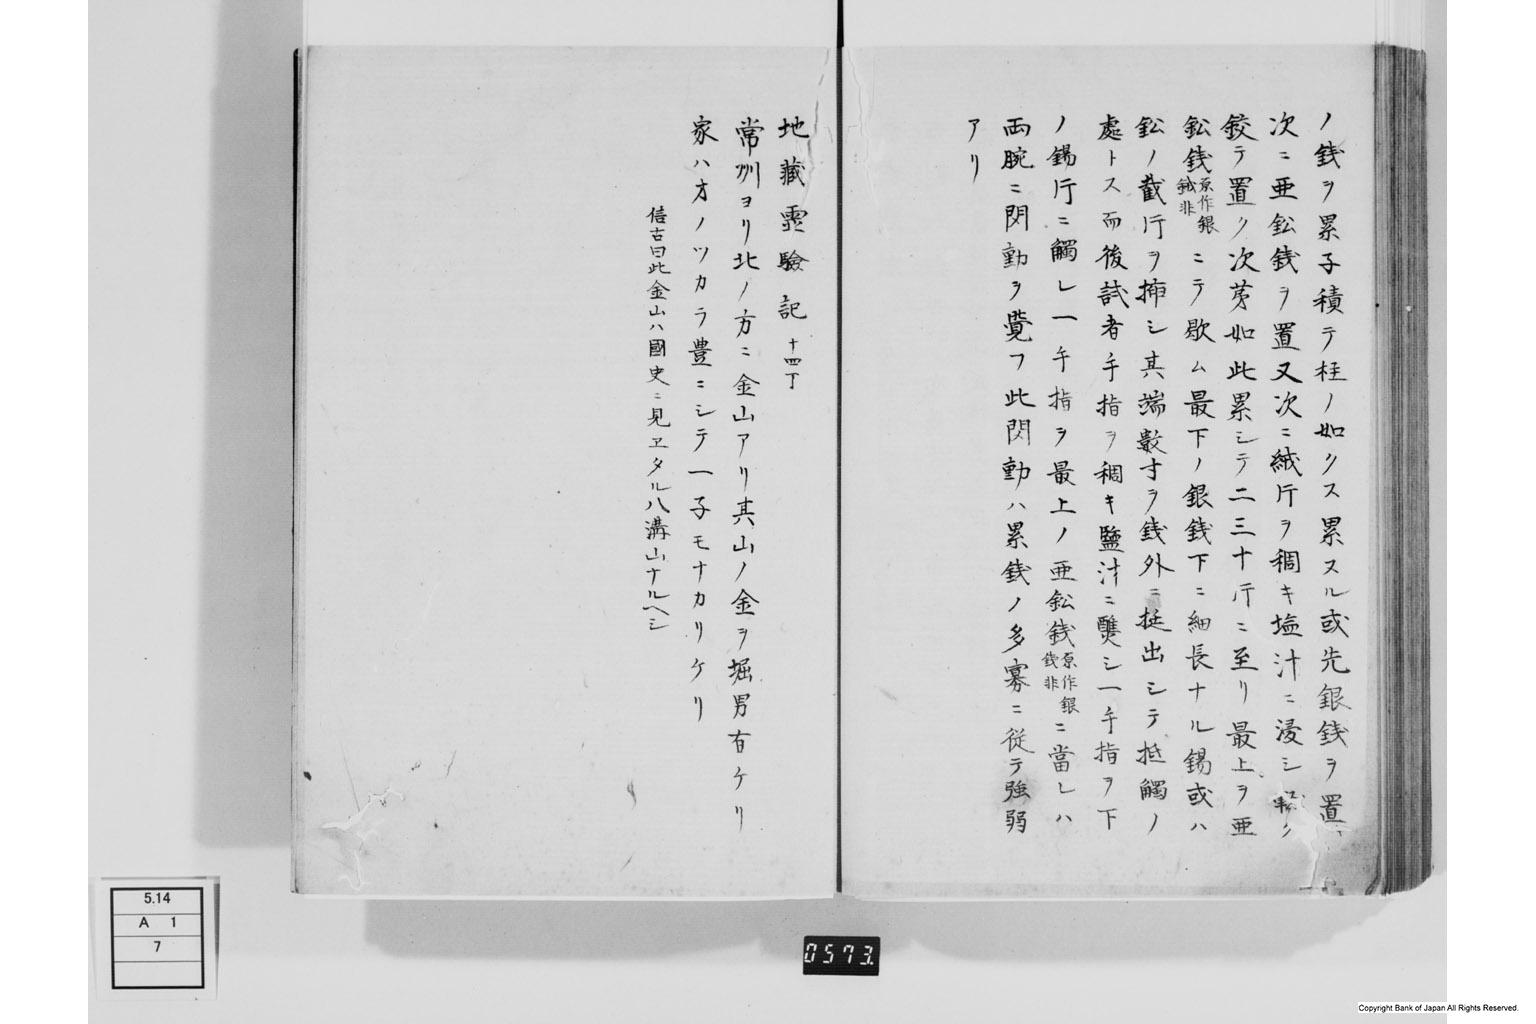 ノ銭ヲ累子積テ柱ノ如クス累スル或先銀銭ヲ置
次ニ亜鈆銭ヲ置又次ニ絨片ヲ稠キ塩汁ニ浸シ軽ク
鉸テ置ク次苐如此累シテ二三十行ニ至リ最上ヲ亜
鈆銭原作銀銭非ニテ歇ム最下ノ銀銭下ニ細長ナル錫或ハ
鈆ノ截片ヲ挿シ其端數寸ヲ銭外ニ挺出シテ抵觸ノ
處トス而後試者手指ヲ稠キ鹽汁ニ蘸シ一手指ヲ下
ノ錫片ニ觸レ一手指ヲ最上ノ亜鈆銭原作銀銭非ニ當レハ
両腕ニ閃動ヲ覺フ此閃動ハ累銭ノ多寡ニ従テ強弱
アリ
地藏靈驗記 十四丁
常州ヨリ北ノ方ニ金山アリ其山ノ金ヲ堀男有ケリ
家ハオノツカラ豊ニシテ一子モナカリケリ
信古曰此金山ハ國史ニ見ヱタル八溝山ナルヘシ
5.14
A 1
7
0573.
Copyright Bank of Japan All Rights Reserved.